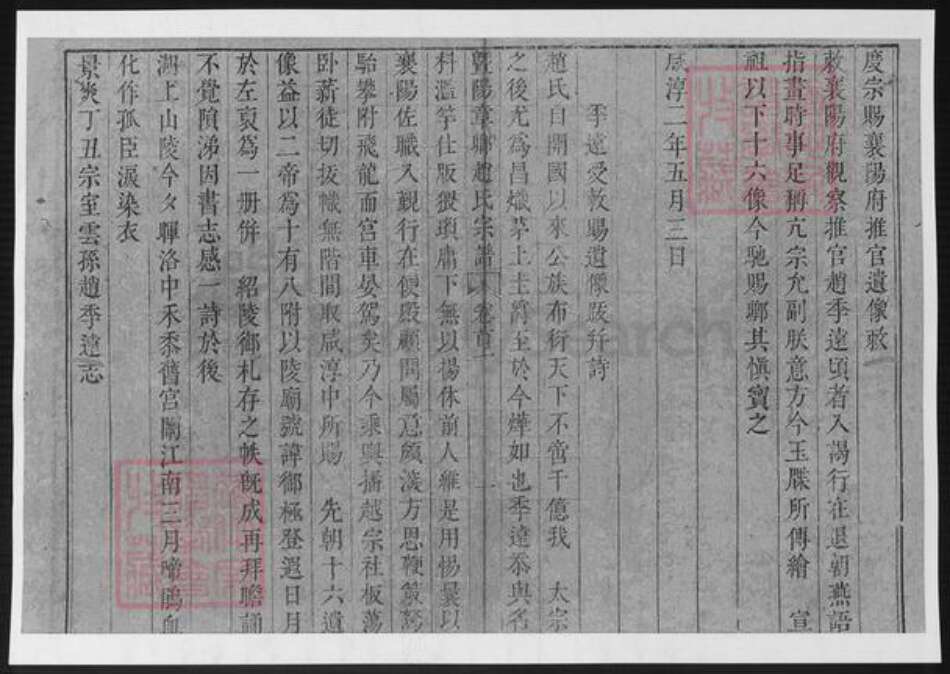 度宗賜襄陽府推官遺像敕
敕襄陽府觀察推官趙季遠頃者入謁行在退朝燕語
指畫時事足稱亢宗允副朕意方今玉牒所傳繪 宣
祖以下十六像今馳賜鄉其慎寶之
咸淳二年五月三日
季遠受敕賜遺像跋并詩
趙氏自開國以來公族布衍天下不啻千億我 太宗
之後尤為昌熾茅土圭爵至於今燁如也季遠忝與名
暨陽章鄉趙氏宗譜 卷首 一
科濫竽仕版猥瑣庸下無以揚休前人維是用惕曩以
襄陽佐職入覲行在便殿顧問屬意頗渥方思鞭策駑
駘攀附飛龍而宮車晏駕矣乃今乘輿播越宗社板蕩
臥薪徒切拔幟無階間取咸淳中所賜 先朝十六遺
像益以二帝為十有八附以陵廟號諱御極登遐日月
於左裒為一册併 紹陵御札存之帙既成再拜瞻誦
不覺隕涕因書志感一詩於後
湖上山陵今夕輝洛中禾黍舊宮闈江南三月啼鵑血
化作孤臣淚染衣
景炎丁丑宗室雲孫趙季遠志